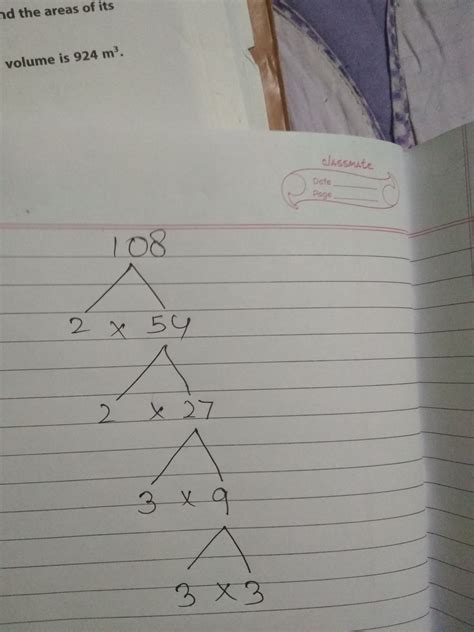 nd the areas of its
volume is 924 m³.
classmate
Date
Page
108
2 x 54
2 x 27
3 x 9
3 x 3